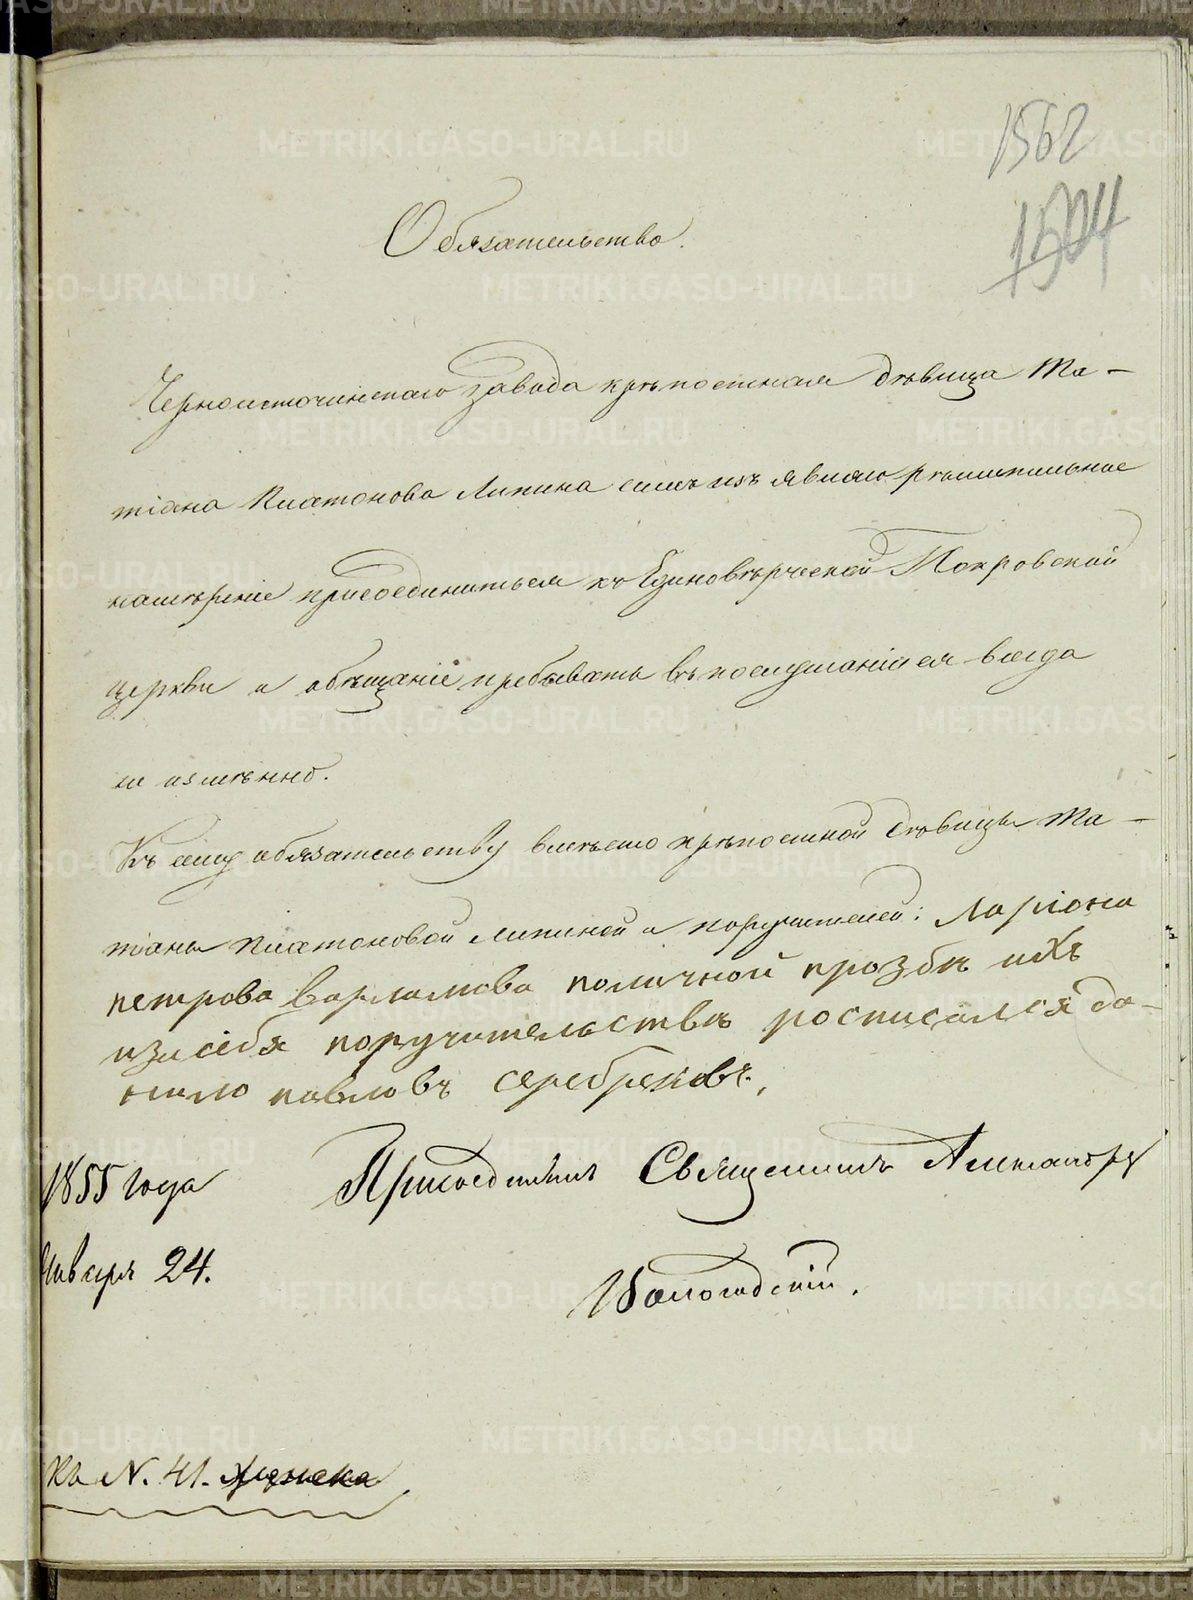 1562
1504
Обязательство.
Черноисточинскаго завода крѣпостная дѣвица Та-
тіана Платонова Липина симъ изъявляю рѣшительное
намѣреніе присоединиться къ Единовѣрческой Покровской
церкви и обѣщаніе пребывать въ послушаніи ея всегда
не измѣнно.
Къ сему обязательству вмѣсто крѣпостной дѣвицы Та-
тіаны Платоновой Липиной и поручителей: Ларiона
петрова Варламова поличной прозбѣ ихъ
изасебя поручительствѣ росписался да-
нило павловъ серебрековъ.
1855 года Присоединилъ Священникъ Александръ
Января 24. Вологодскій.
Къ N. 41.